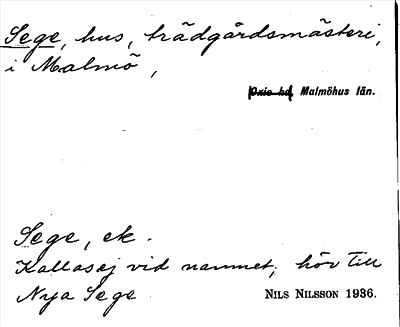 Sege, hus, trädgårdsmästeri,
i Malmö,
Oxie hd Malmöhus län.
Sege, ek.
Kallas ej vid namnet; hör till
Nya Sege
NILS NILSSON 1936.